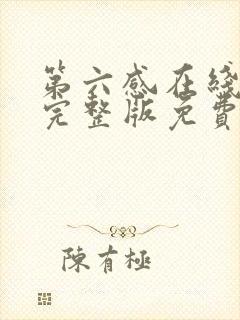 第六感在綫
完整版免費
陳有極